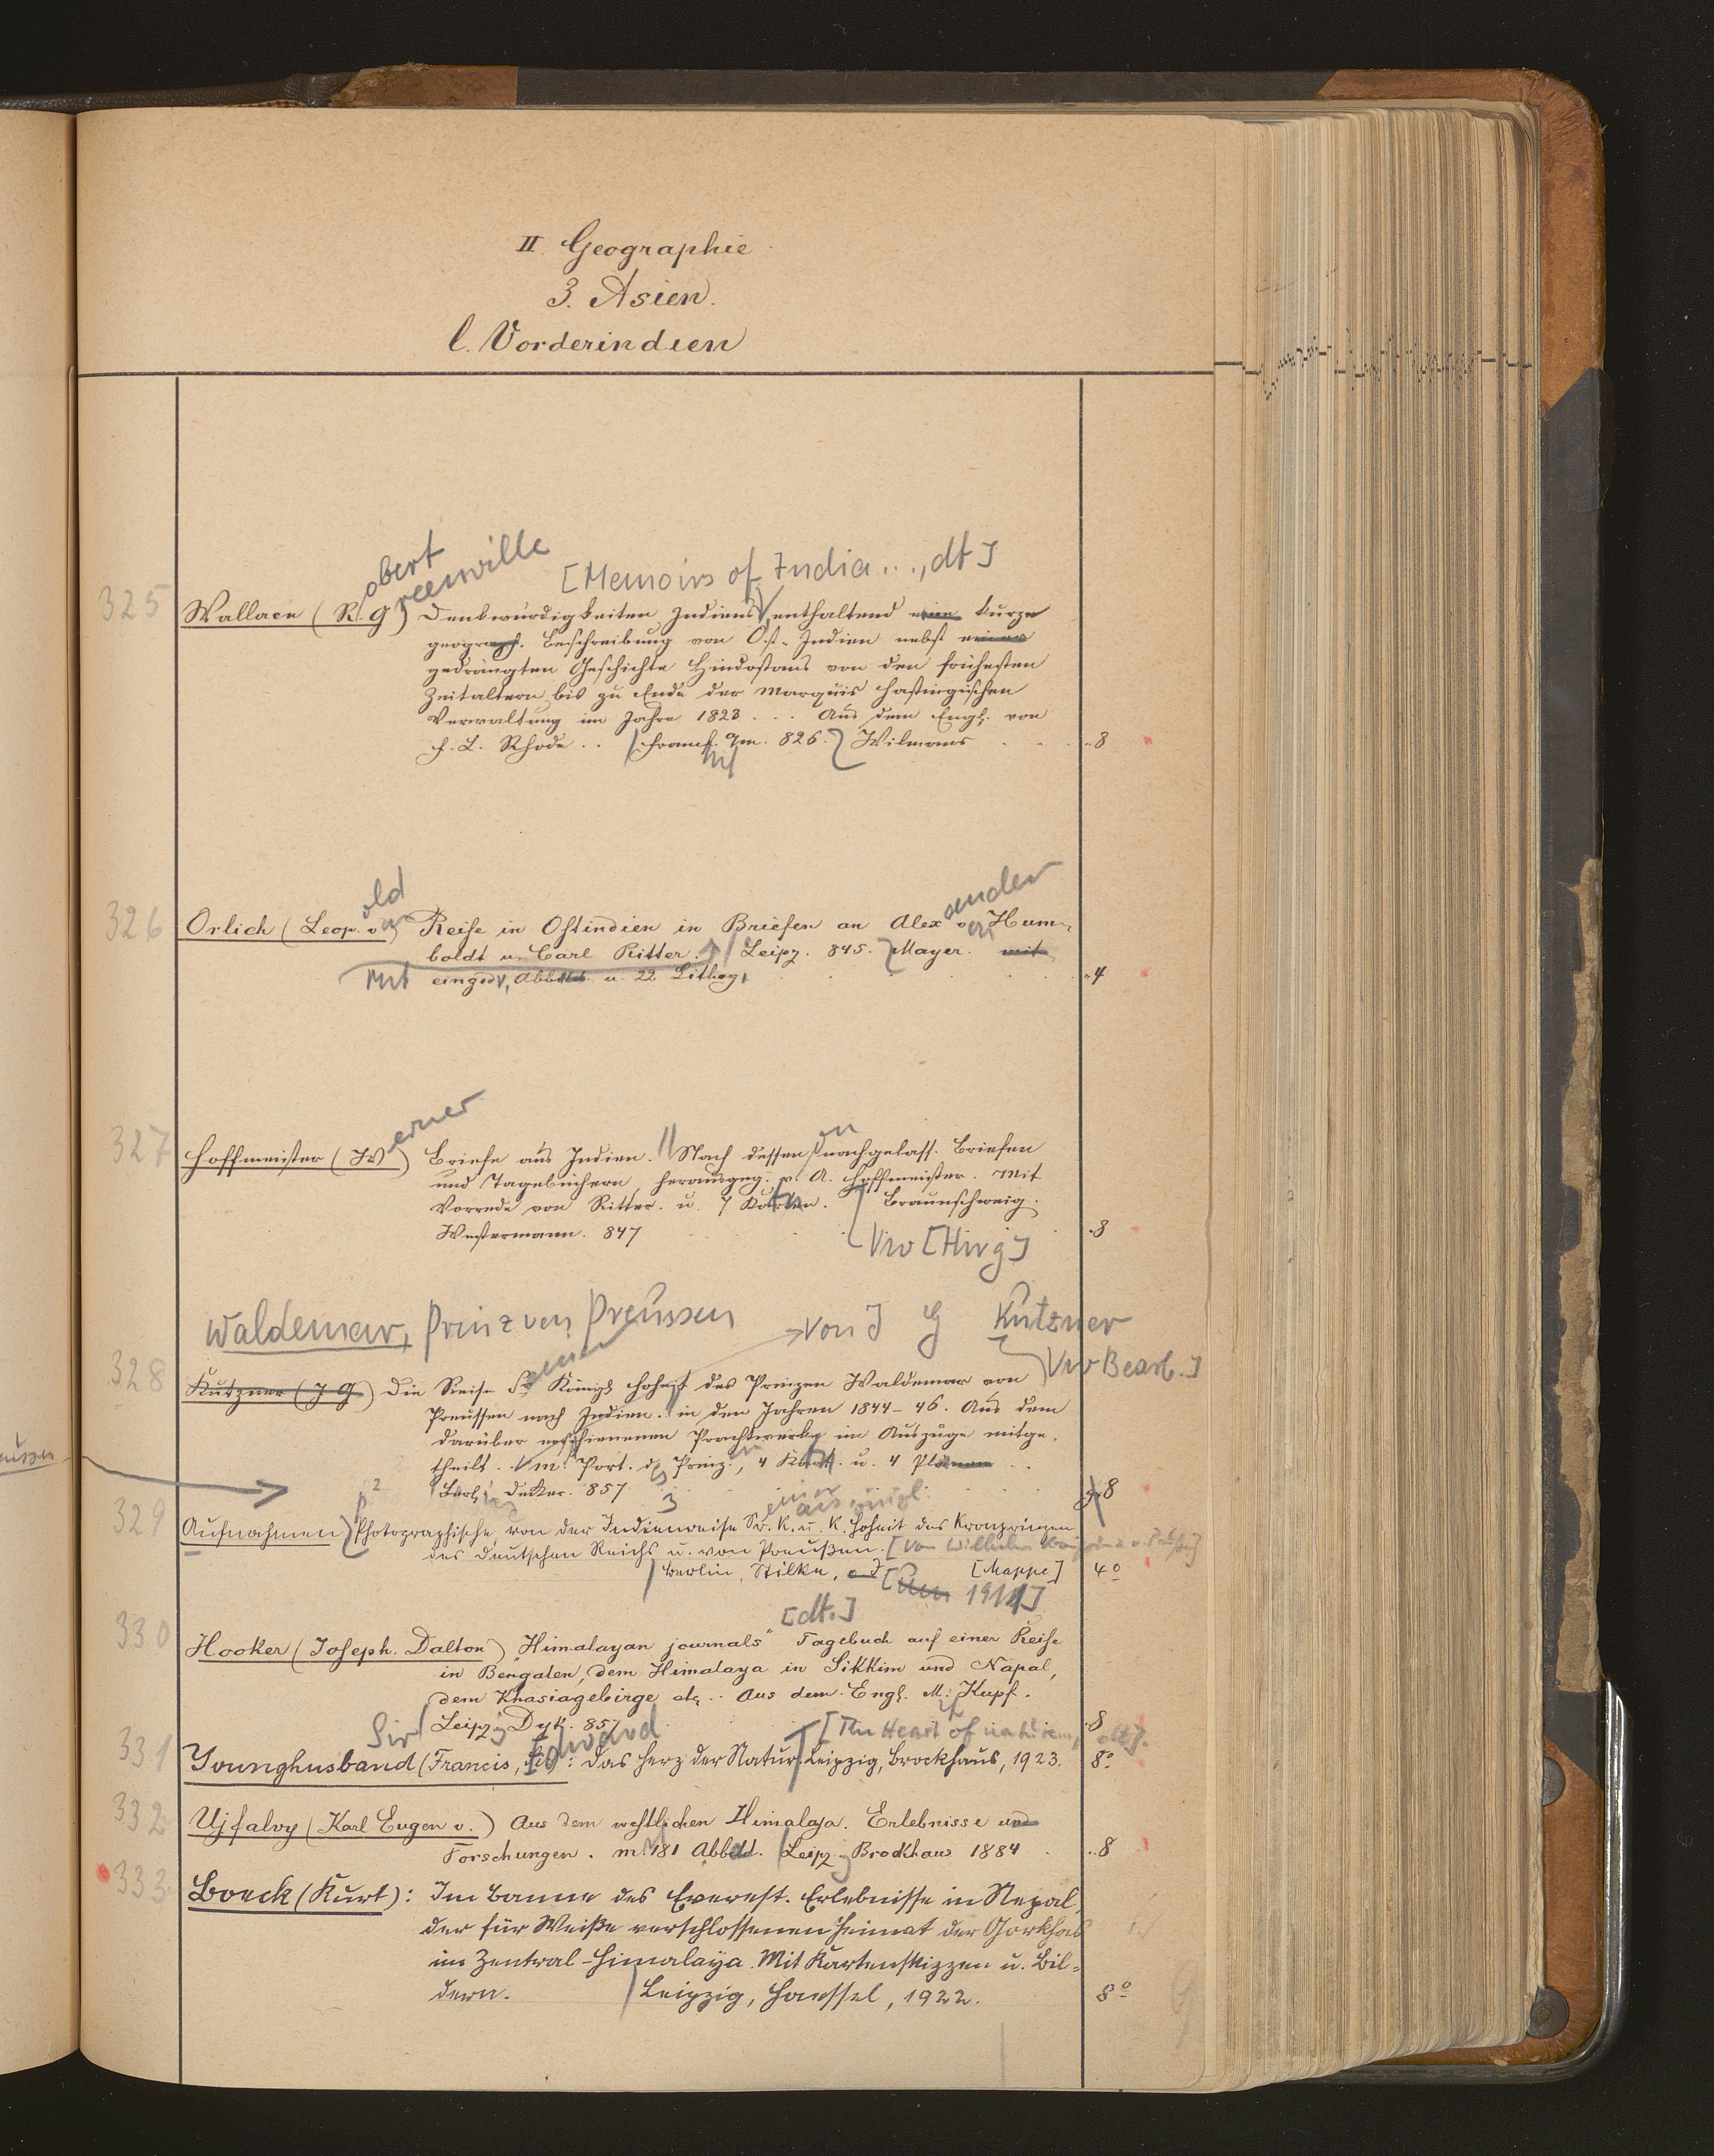 II. Geographie
3. Asien.
l. Vorderindien
obert
reenville
[Memoirs of India..., dt]
325 Wallace (R. G) Denkwürdigkeiten Indiens enthaltend eine kurze
geograph. Beschreibung von Ost-Indien nebst einer
gedrängten Geschichte Hindostans von den frühesten
Zeitaltern bis zu Ende der Marquis Hastingischen
Verwaltung im Jahre 1823 . . . Aus dem Engl. von
F. L. Rhode . . Francf. a/m. 826. Wilmans 8
old
ander
326 Orlich (Leop. v) Reise in Ostindien in Briefen an Alex v Hum-
boldt u. Carl Ritter. Leipz. 845. Mayer. mit
Mit eingedr. Abb u. 22 Lithog. 4
erner
on
327 Hoffmeister (W) Briefe aus Indien. Nach dessen nachgelass. Briefen
und Tagebüchern, herausgeg. v. A. Hoffmeister. Mit
Vorrede von Ritter. u. 7 Karten. Braunschweig.
Westermann. 847 8
Vw [Hrsg]
Waldemar, Prinz von Preussen von J G Kutzner
Vw Bearb.]
einer
328 Kutzner (J G) Die Reise Sr Königl Hoheit des Prinzen Waldemar von
Preussen nach Indien. in den Jahren 1844-46. Aus dem
darüber erschienenen Prachtwerke im Auszuge mitge-
theilt. m. Port. d. Prinz., 4 Kart. u. 4 Plänen . .
Berl. Decker. 857 8
329 Aufnahmen Photographische, von der Indienreise Sr. K. u. K. Hoheit des Kronprinzen
des Deutschen Reichs u. von Preußen. [Von Wilhelm
Berlin, Stilke, o J [Mappe] 4°
1911]
[dt.]
330 Hooker (Joseph. Dalton) "Himalayan journals" Tagebuch auf einer Reise
in Bengalen, dem Himalaya in Sikkim und Napal,
dem Khasiagebirge etc.. Aus dem Engl. M. Kupf.
Leipz. Dyk. 857 8
Sir Edward [The Heart of nature, dt].
331 Younghusband (Francis, Sir): Das Herz der Natur. Leipzig, Brockhaus, 1923. 8°
332 Ujfalvy (Karl Eugen v.) Aus dem westlichen Himalaja. Erlebnisse und
Forschungen. m. 181 Abbdd. Leipz. Brockhaus 1884 8
333 Boeck (Kurt): Im Banne des Everest. Erlebnisse in Nepal,
der für Weiße verschlossenen Heimat der Gorkhas
im Zentral-Himalaya. Mit Kartenskizzen u. Bil-
dern. Leipzig, Haessel, 1922. 8°